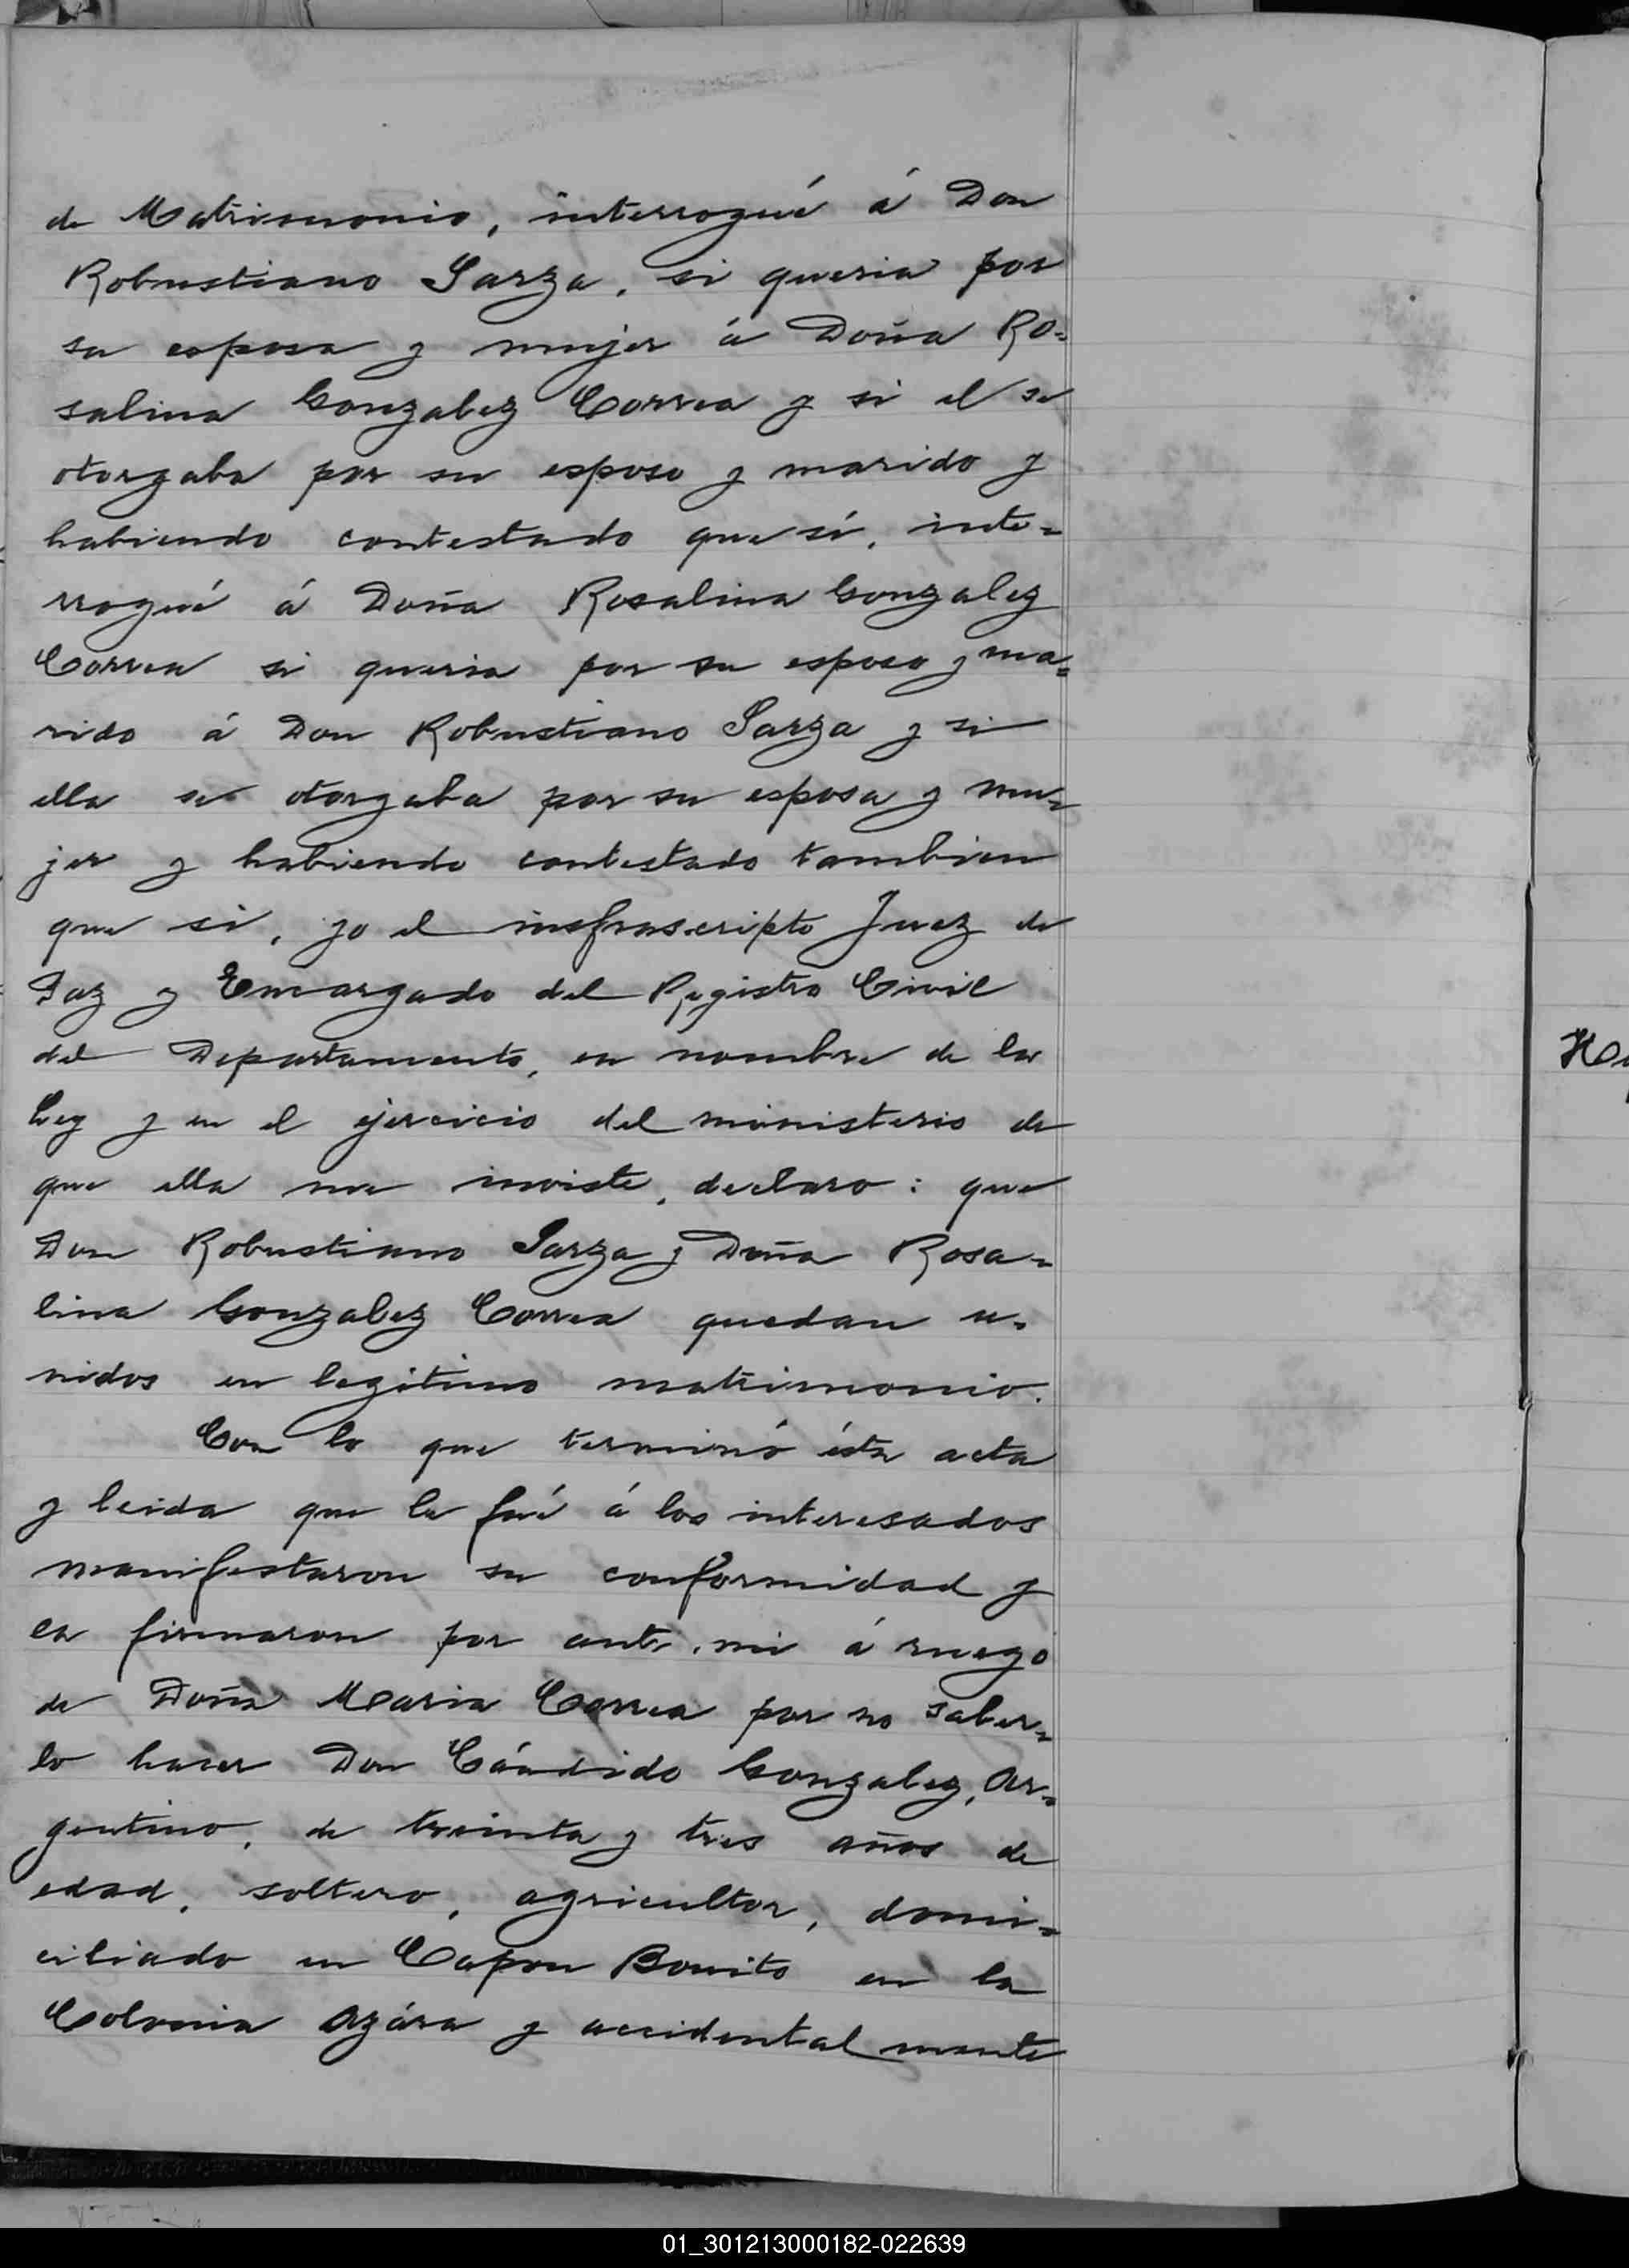 de Matrimonio, interrogué á Don
Robustiano Sarza, si queria por
su esposa y mujer á Doña Ro=
salina Gonzalez Correa y si el se
otorgaba por su esposo y marido y
habiendo contestado que sí, inte=
rrogué á Doña Rosalina Gonzalez
Correa si queria por su esposo y ma=
rido á Don Robustiano Sarza y si
ella se otorgaba por su esposa y mu=
jer y habiendo contestado tambien
que si, yo el infrascripto Juez de
Paz y Encargado del Registro Civil
del Departamento, en nombre de la
Ley y en el ejercicio del ministerio de
que ella me inviste, declaro: que
Don Robustiano Sarza y Doña Rosa=
lina Gonzalez Correa quedan u=
nidos en legitimo matrimonio.
Con lo que terminó ésta acta
y leida que le fué á los interesados
manifestaron su conformidad y
la firmaron por ante mi á ruego
de Doña Maria Correa por no saber=
lo hacer Don Cándido Gonzalez, Ar=
gentino, de treinta y tres años de
edad, soltero, agricultor, domi=
ciliado en Capon Bonito en la
Colonia Azára y accidentalmente
01_301213000182-022639